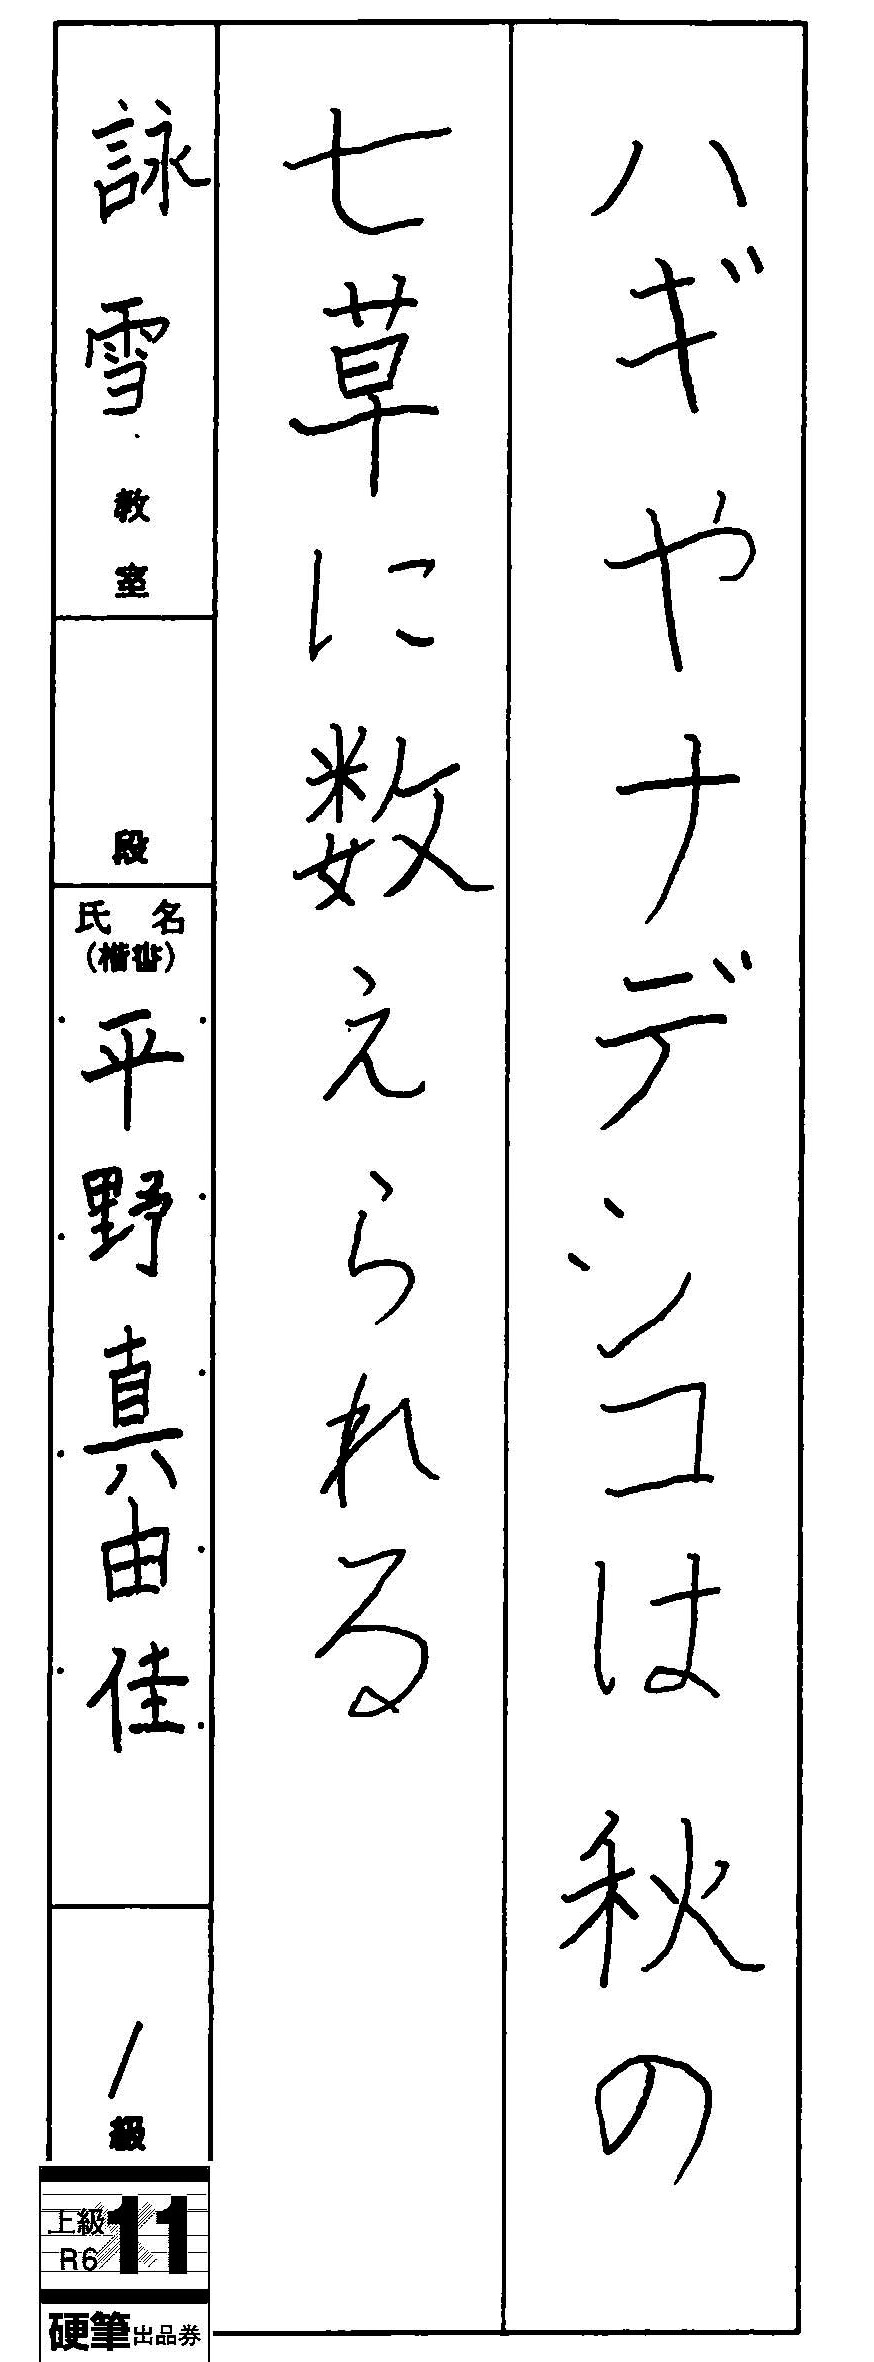 ハギやナデシコは秋の
七草に数えられる
詠雪教室
段
氏名
(楷書)
平野真由佳
1級
上級
R6
11
硬筆出品券